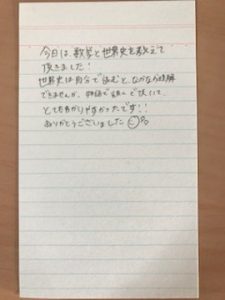 今日は、数学と世界史を教えて
頂きました!
世界史は自分で読むと、なかなか理解
できませんが、物語で頭に
とても分かりやすかったです!!
ありがとうございました